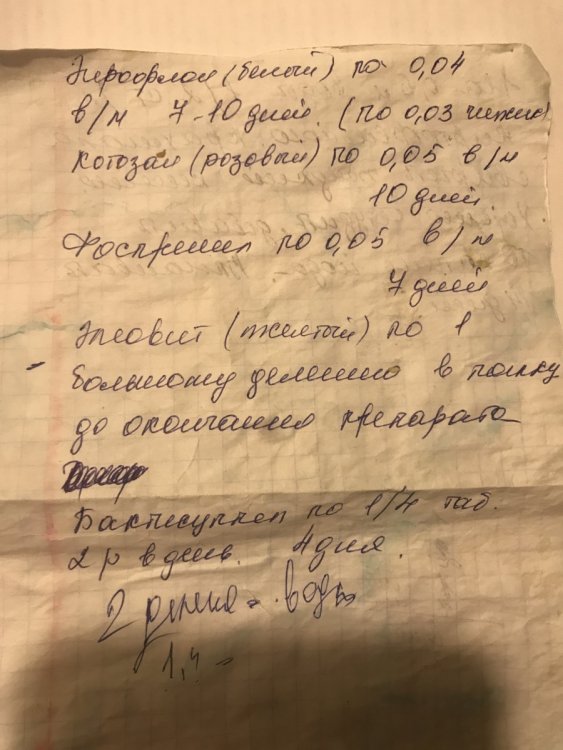 Энрофлон (белый) по 0,04
в/м 7-10 дней. (по 0,03 чижик)
Котозал (розовый) по 0,05 в/м
10 дней.
Фоспренил по 0,05 в/м
7 дней
Элеовит (желтый) по 1
большому делению в поилку
до окончания препарата
Бактисуптил по 1/4 таб.
2 р в день. 4 дня.
2 воды
1,4 -